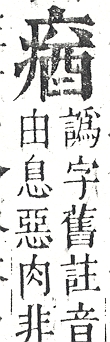 譌字舊註音
由息惡肉非